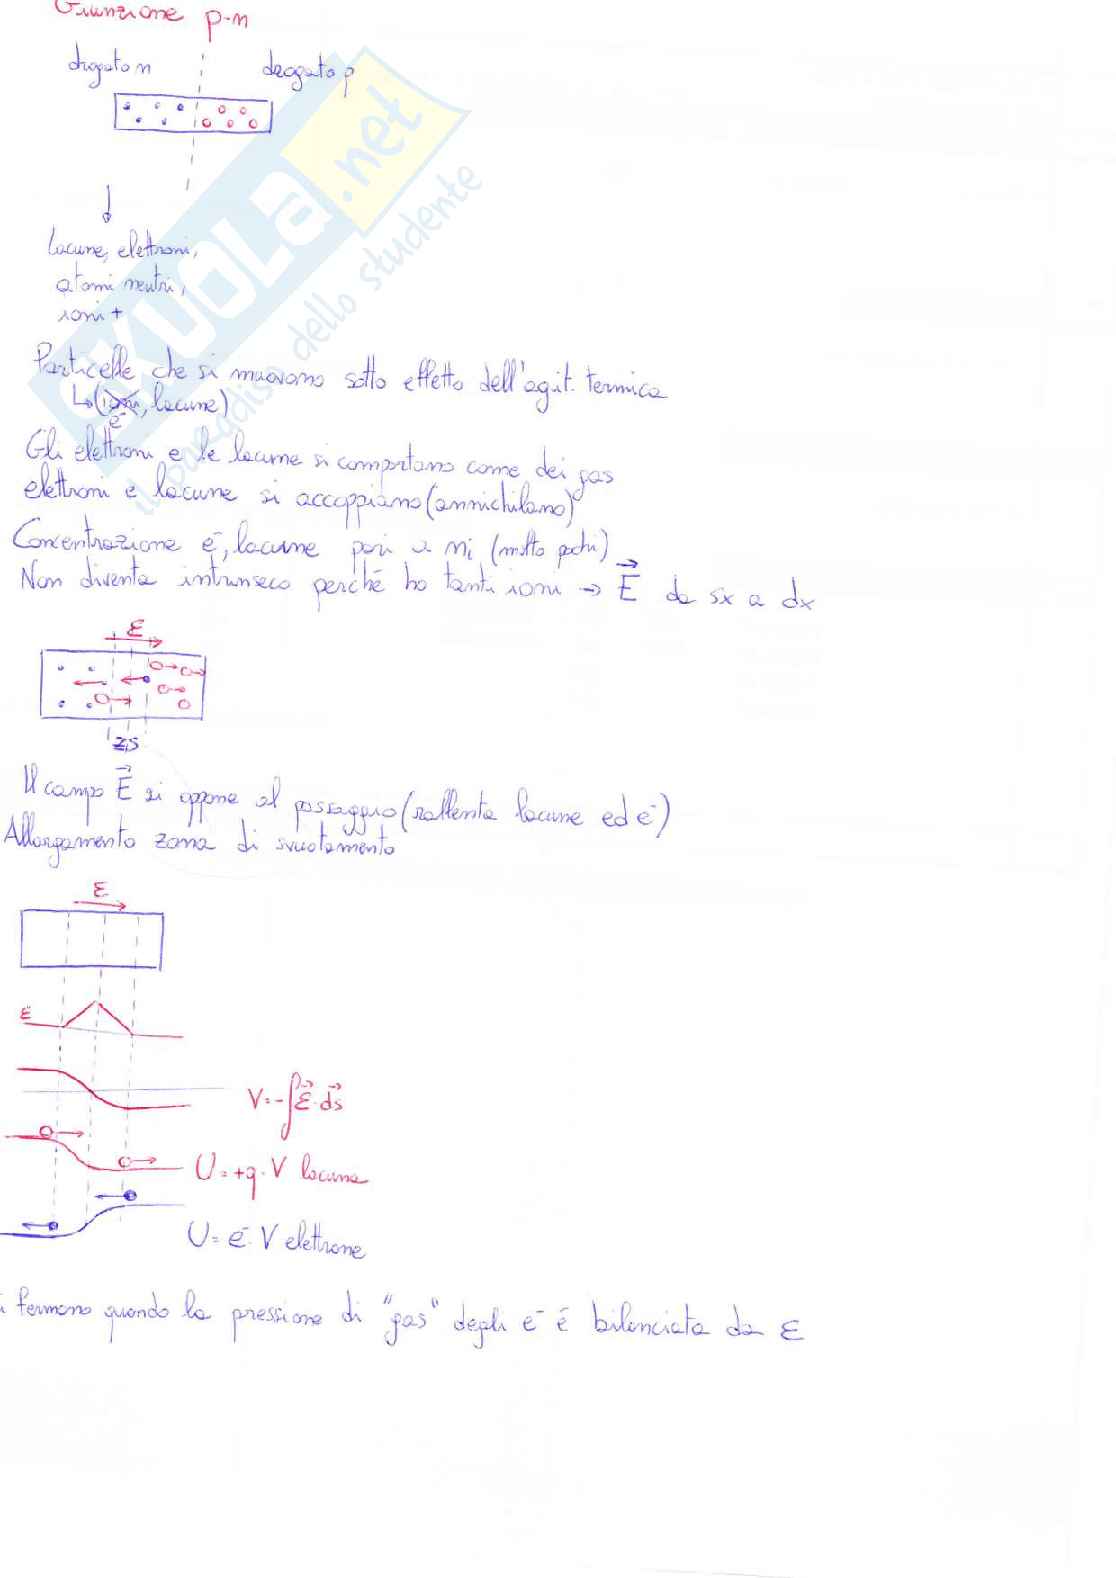 Giunzione p-n
drogato n drogato p
lacune, elettroni,
atomi neutri,
ioni +
Particelle che si muovono sotto effetto dell'agit. termica
↳ (e⁻, lacune)
Gli elettroni e le lacune si comportano come dei gas
elettroni e lacune si accoppiano (annichilano)
Concentrazione e⁻, lacune pari a ni (molto pochi)
Non diventa intrinseco perché ho tanti ioni → E da sx a dx
ε
ZS
Il campo E si oppone al passaggio (rallenta lacune ed e⁻)
Allargamento zona di svuotamento
ε
ε
V = -∫ε·ds
U = +q·V lacuna
U = e⁻·V elettrone
i fermano quando la pressione di "gas" degli e⁻ é bilanciata da ε
SKUOLA.net
il paradiso dello studente